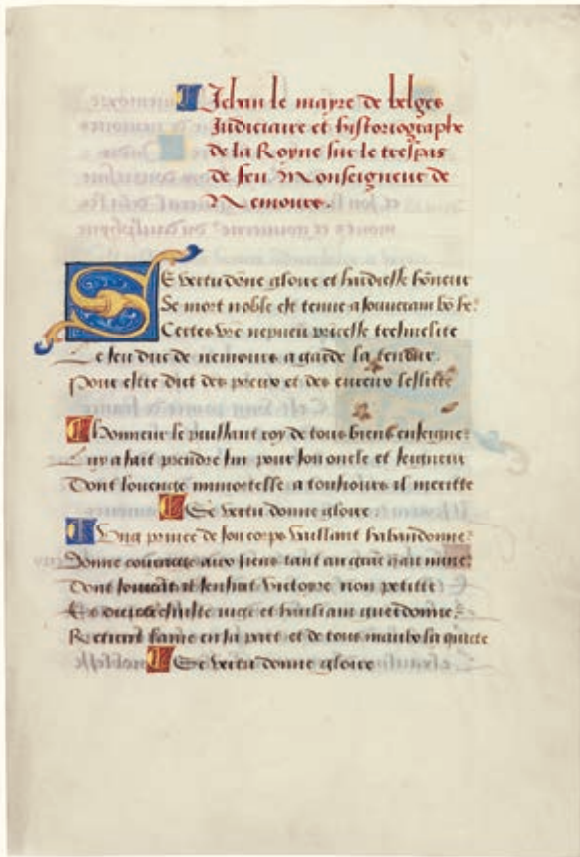 Jehan le mayre de belges
Indiciaire et historiographe
de la Royne sur le trespas
de feu Monseigneur de
Nemours.
Se vertu dõne gloire et hardiesse hõneur
Se mort noble est tenue a souverain bõ
Certes vre nepueu
Le feu duc de nemours a garde la
Pour estre dict des preux et des eureux
Lhonneur le puissant roy de tous biens enseigneᷣ
Luy a fait prendre fin pour son oncle et seigneur
Dont louenge immortelle a tousiours il merite
Se vertu donne gloire
Ung prince de son corps vaillant habandonneᷣ
Donne couraige aux siens tant
Dont sensuit victoire non petite
juge et
Recueut lame en sa part et de tous maulx la quicte
Se vertu donne gloire